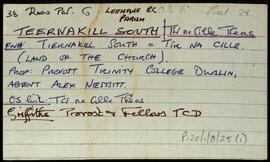 38 Ross Par. G LEENANE RC PARISH
TEERNAKILL SOUTH Tír na Cille Theas
ENG TIERNAKILL SOUTH = TIR NA CILLE.
(LAND OF THE CHURCH).
PROP: PROVOST TRINITY COLLEGE DUBLIN,
AGENT ALEX NESBITT.
OS list: Tír na Cille Theas
Griffiths Provost & Fellows TCD
P120/1/8/25 (i)